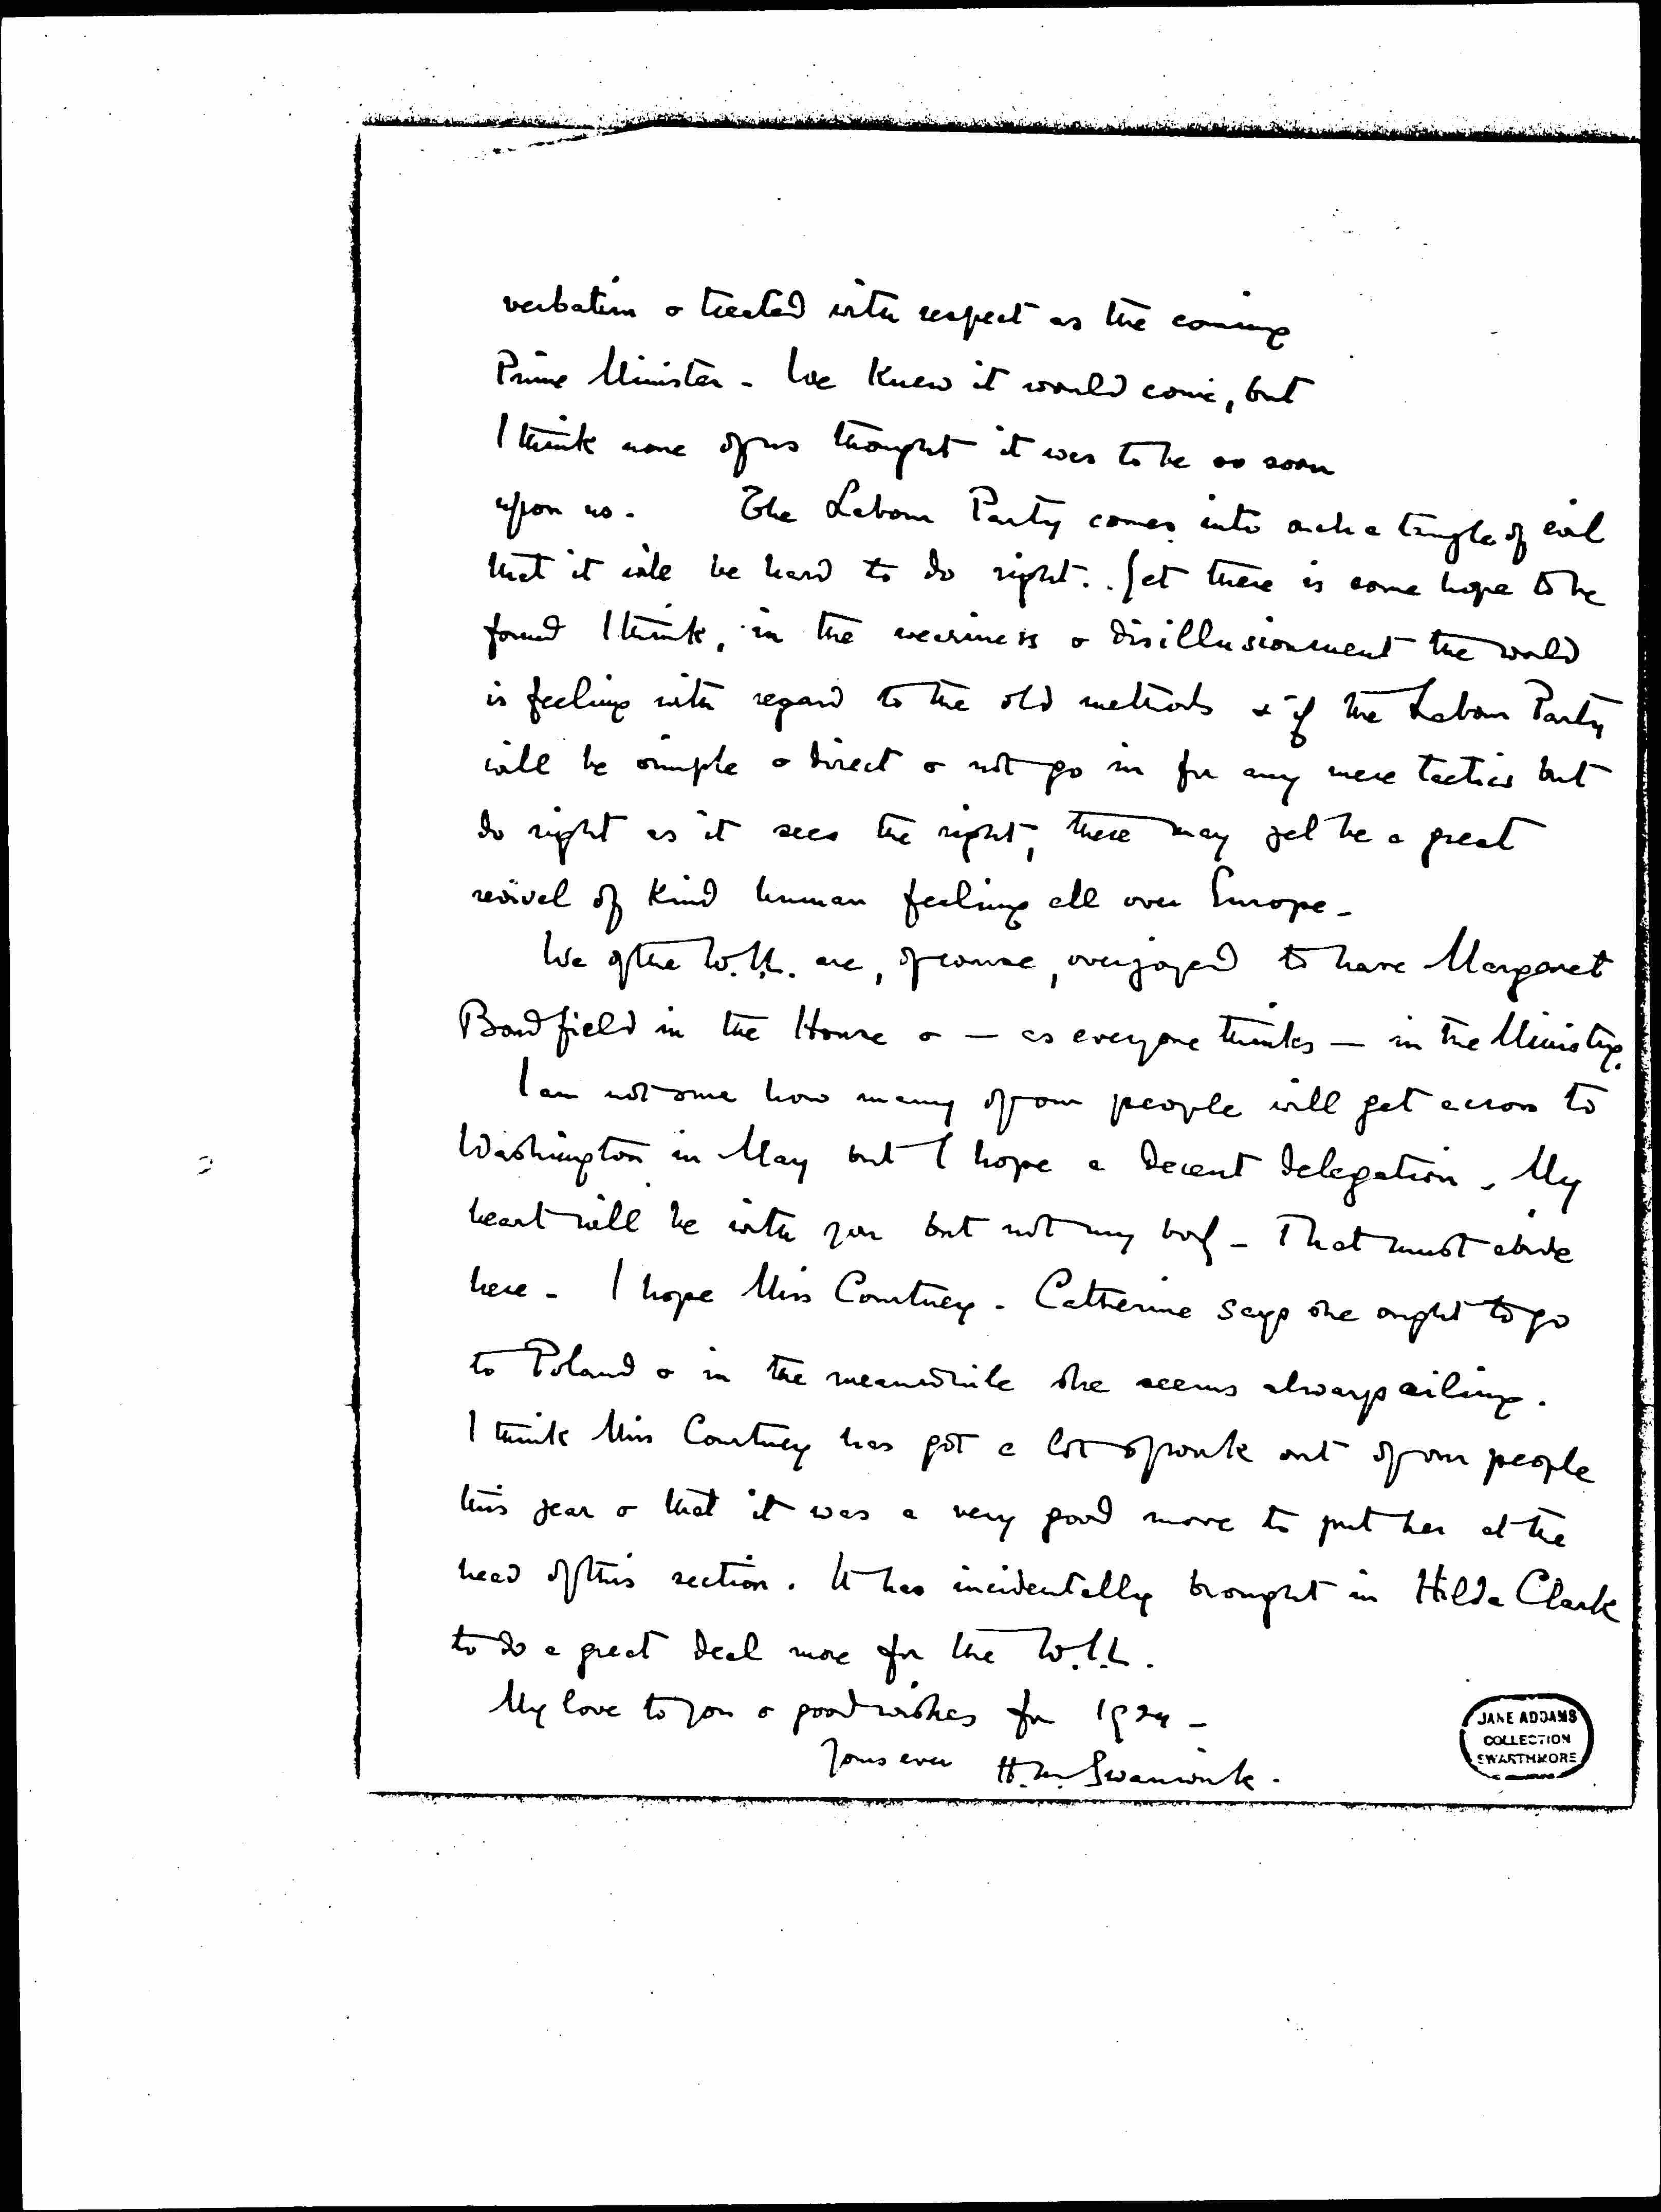 verbatim & treated with respect as the coming
Prime Minister - We knew it would come, but
I think none of us thought it was to be so soon
upon us. The Labour Party comes into such a tangle of evil
that it will be hard to do right. Yet there is some hope to be
found I think, in the weariness & disillusionment the world
is feeling with regard to the old methods & if the Labour Party
will be simple & direct & not go in for any mere tactics but
do right as it sees the right, there may yet be a great
revival of kind human feeling all over Europe -
We of the W.I.L. are, of course, overjoyed to have Margaret
Bondfield in the House & - as everyone thinks - in the Ministry.
I am not sure how many of our people will get across to
Washington in May but I hope a decent delegation. My
heart will be with you but not my body - That must abide
here - I hope Miss Courtney - Catherine says she ought to go
to Poland & in the meanwhile she seems always ailing.
I think Miss Courtney has got a lot of work out of our people
this year & that it was a very good move to put her at the
head of this section. It has incidentally brought in Hilda Clark
to do a great deal more for the W.I.L.
My love to you & good wishes for 1924 -
Yours ever H. M. Swanwick.
JANE ADDAMS
COLLECTION
SWARTHMORE